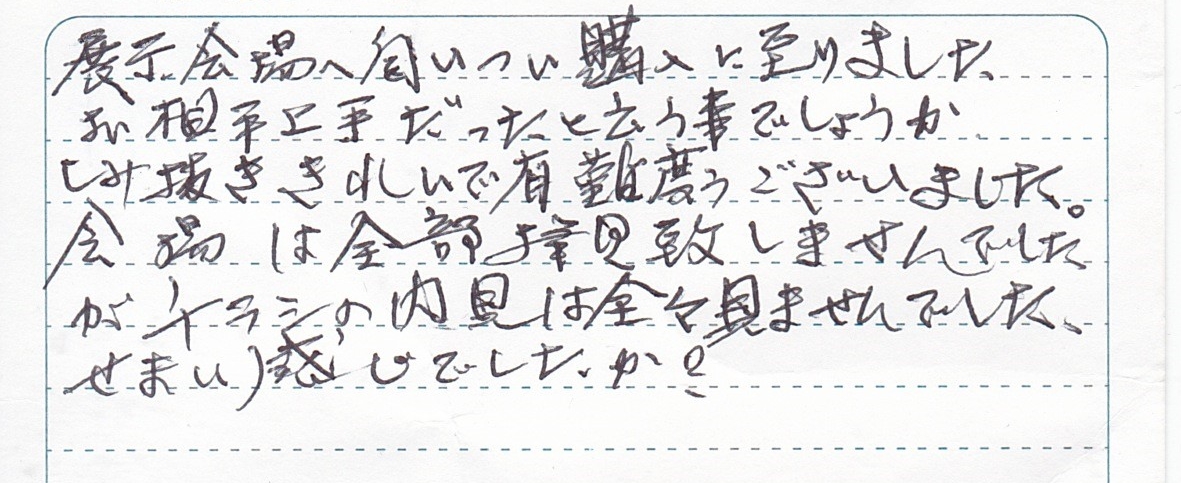 展示会場へ伺いつい購入に至りました
お相手上手だったと云う事でしょうか
しみ抜ききれいで有難度うございました。
会場は全部拝見致しませんでした
がチラシの内見は全々見ませんでした、
せまい感じでしたか?